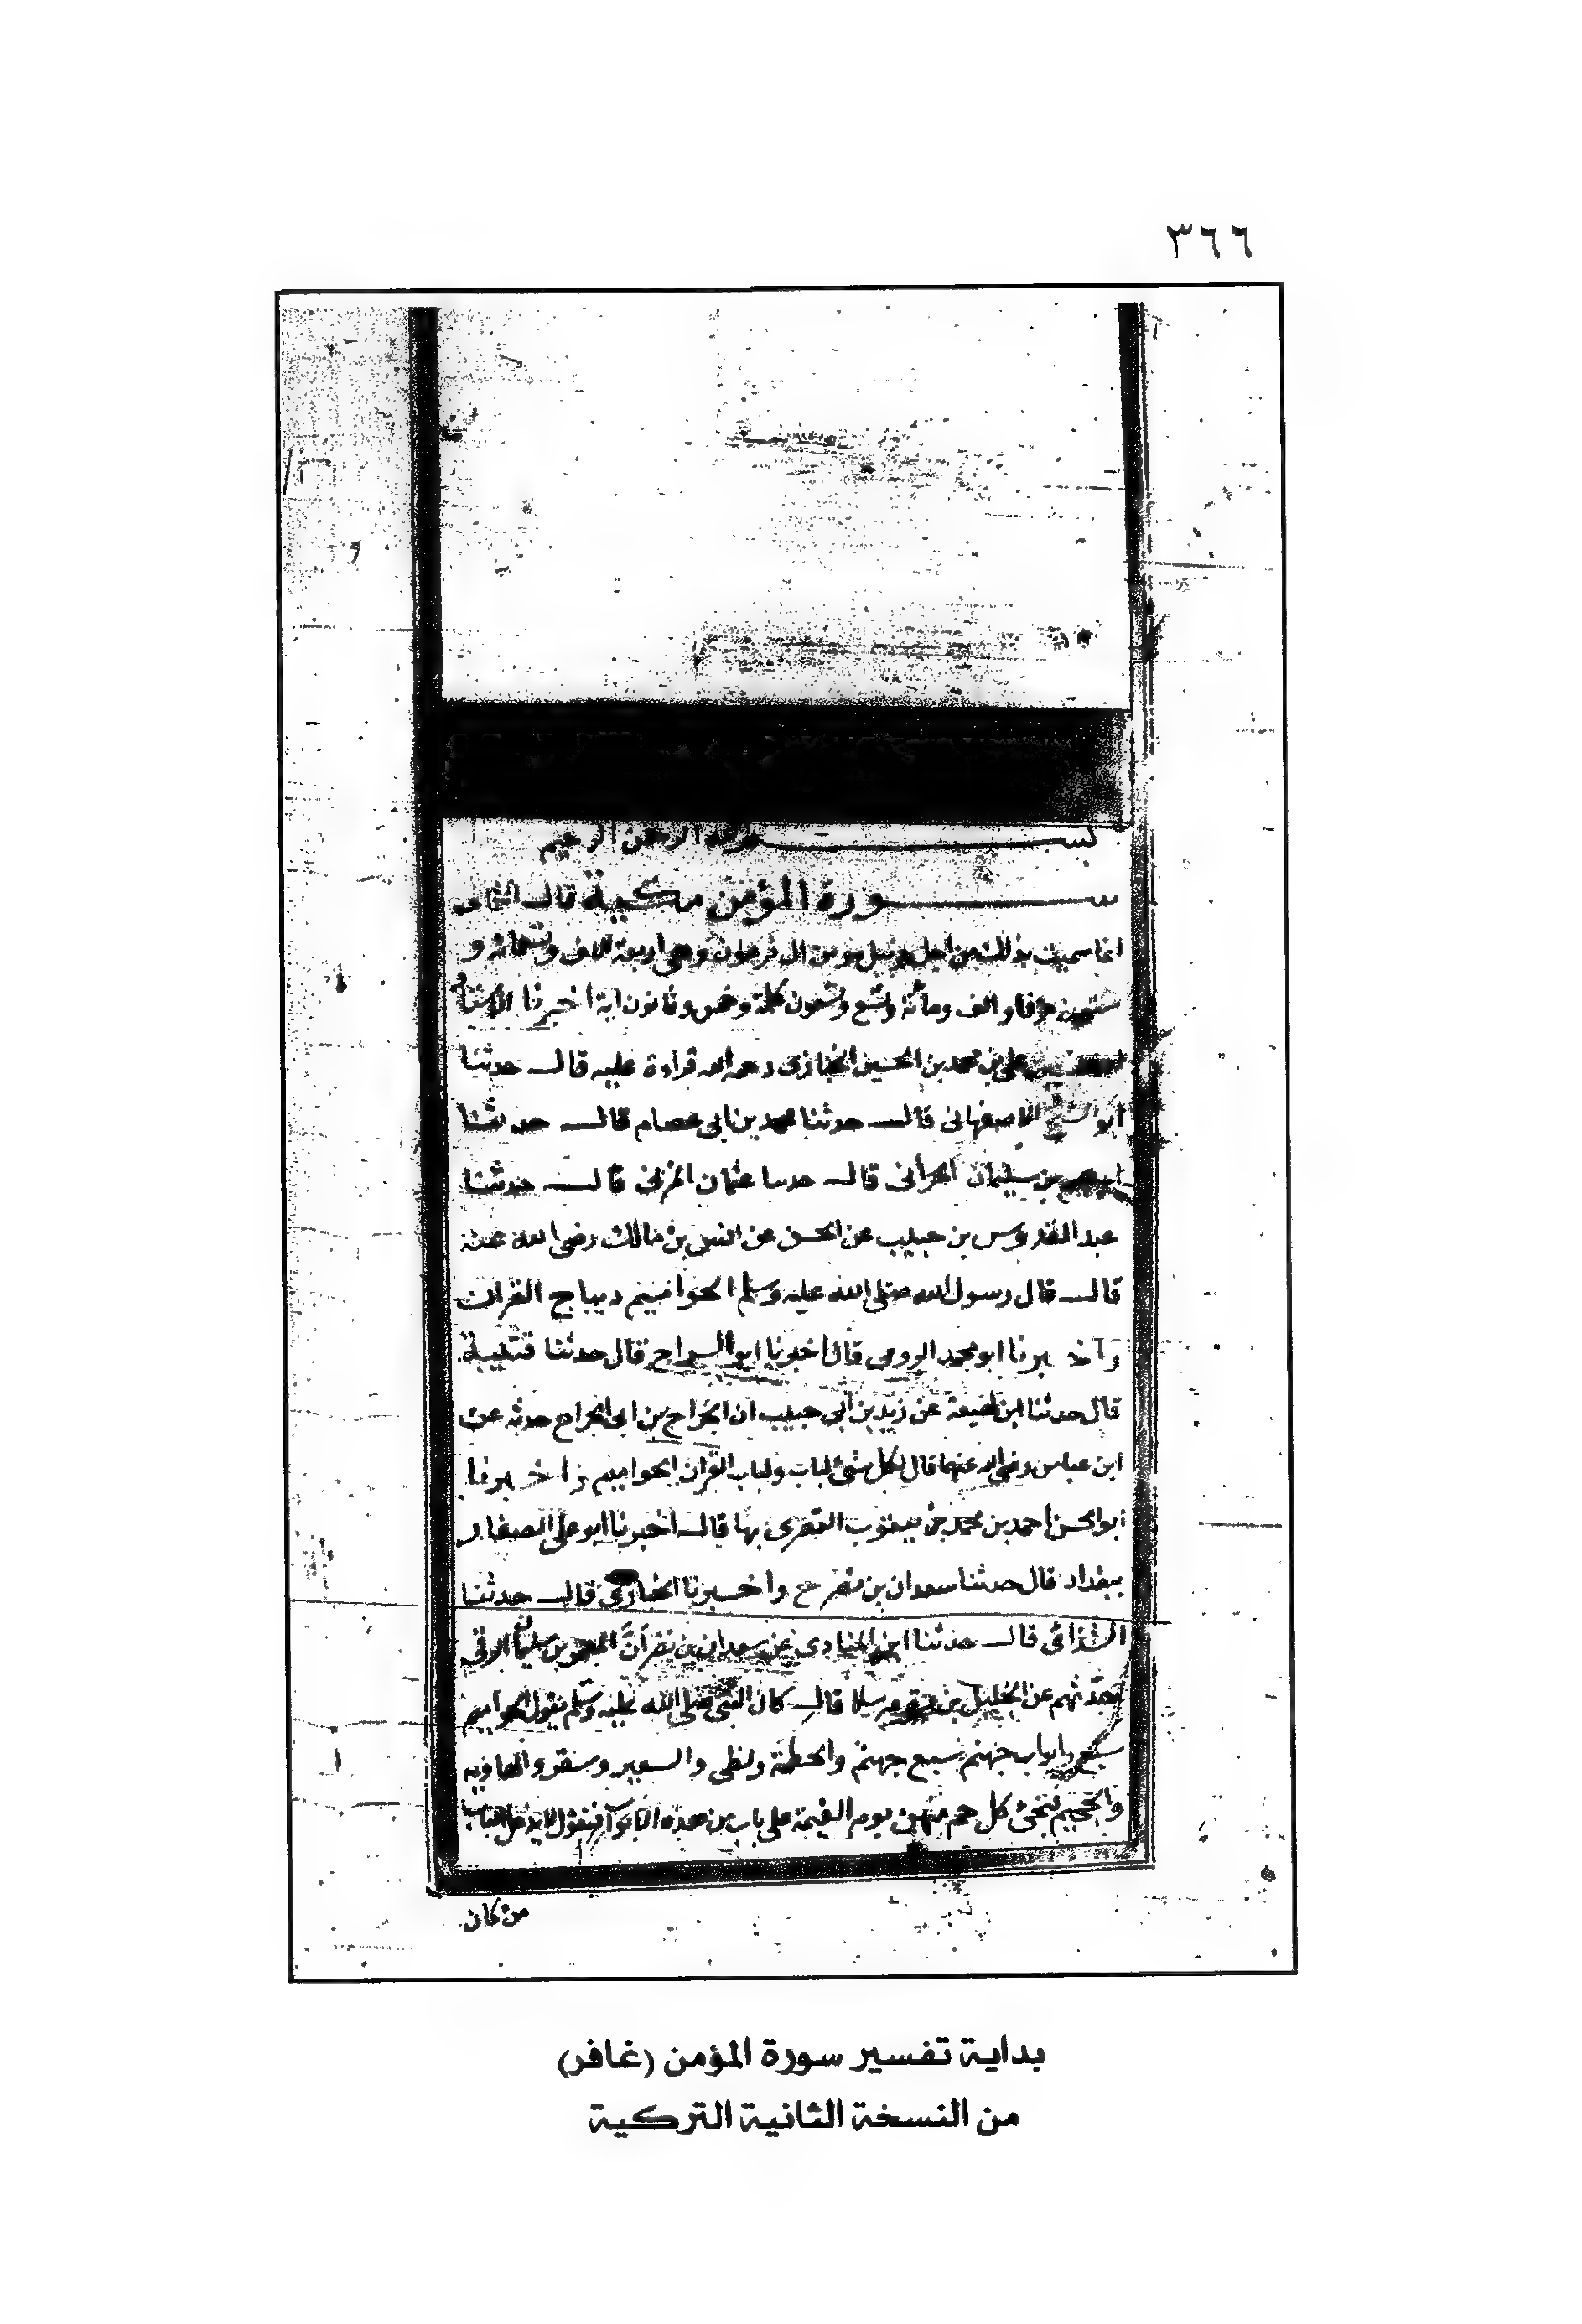 ٣٦٦
بســـــم الله الرحمن الرحيم
ســـــورة المؤمن مكية قال
انما سميت بذلك من اجل حزبيل مومن ال فرعون وهى اربعة الاف وتسعمائة و
ستون حرفا والف ومائة وتسع وتسعون كلمة وخمس وثمانون اية اخبرنا الاستاذ
على بن محمد بن الحسين الخبازى رحمه الله قراءة عليه قال حدثنا
ابو الشيخ الاصفهانى قال حدثنا محمد بن ابى عصام قال حدثنا
بن سليمان الحرانى قال حدسا عثمان المزنى قال حدثنا
عبد القدوس بن حبيب عن الحسن عن انس بن مالك رضى الله عنه
قال قال رسول الله صلى الله عليه وسلم الحواميم ديباج القران
واخبرنا ابو محمد الرومى قال اخبرنا ابو السراج قال حدثنا قتيبة
قال حدثنا ابن لهيعة عن زيد بن ابى حبيب ان الجراح بن ابى الجراح حدثه عن
ابن عباس رضى الله عنهما قال لكل شئ لباب ولباب القران الحواميم واخبرنا
ابو الحسن احمد بن محمد بن يعقوب بها قال اخبرنا ابو على الصفار
ببغداد قال حدثنا سعدان بن نصر ح واخبرنا الخبازى قال حدثنا
الشذائى قال حدثنا ابن المنادى عن سعدان بن نصر أنّ المعمر بن سليمان الرقى
حدّثهم عن الخليل بن مرة مرسلا قال كان النبى صلى الله عليه وسلم يقول الحواميم
سبع وابواب جهنم سبع جهنم والحطمة ولظى والسعير وسقر والهاويه
والجحيم تجئ كل حم منهن يوم القيمة على باب من هذه الابواب فتقول لا يدخل الباب
من كان
بداية تفسير سورة المؤمن (غافر)
من النسخة الثانية التركية